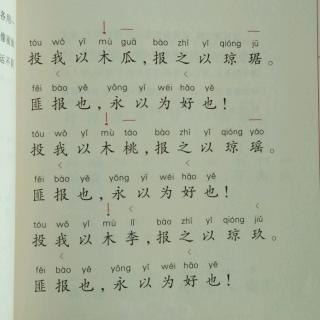 各组
tóu wǒ yǐ mù guā bào zhī yǐ qióng jū
投我以木瓜，报之以琼琚。
fěi bào yě yǒng yǐ wéi hǎo yě
匪报也，永以为好也！
tóu wǒ yǐ mù táo bào zhī yǐ qióng yáo
投我以木桃，报之以琼瑶。
fěi bào yě yǒng yǐ wéi hǎo yě
匪报也，永以为好也！
tóu wǒ yǐ mù lǐ bào zhī yǐ qióng jiǔ
投我以木李，报之以琼玖。
fěi bào yě yǒng yǐ wéi hǎo yě
匪报也，永以为好也！